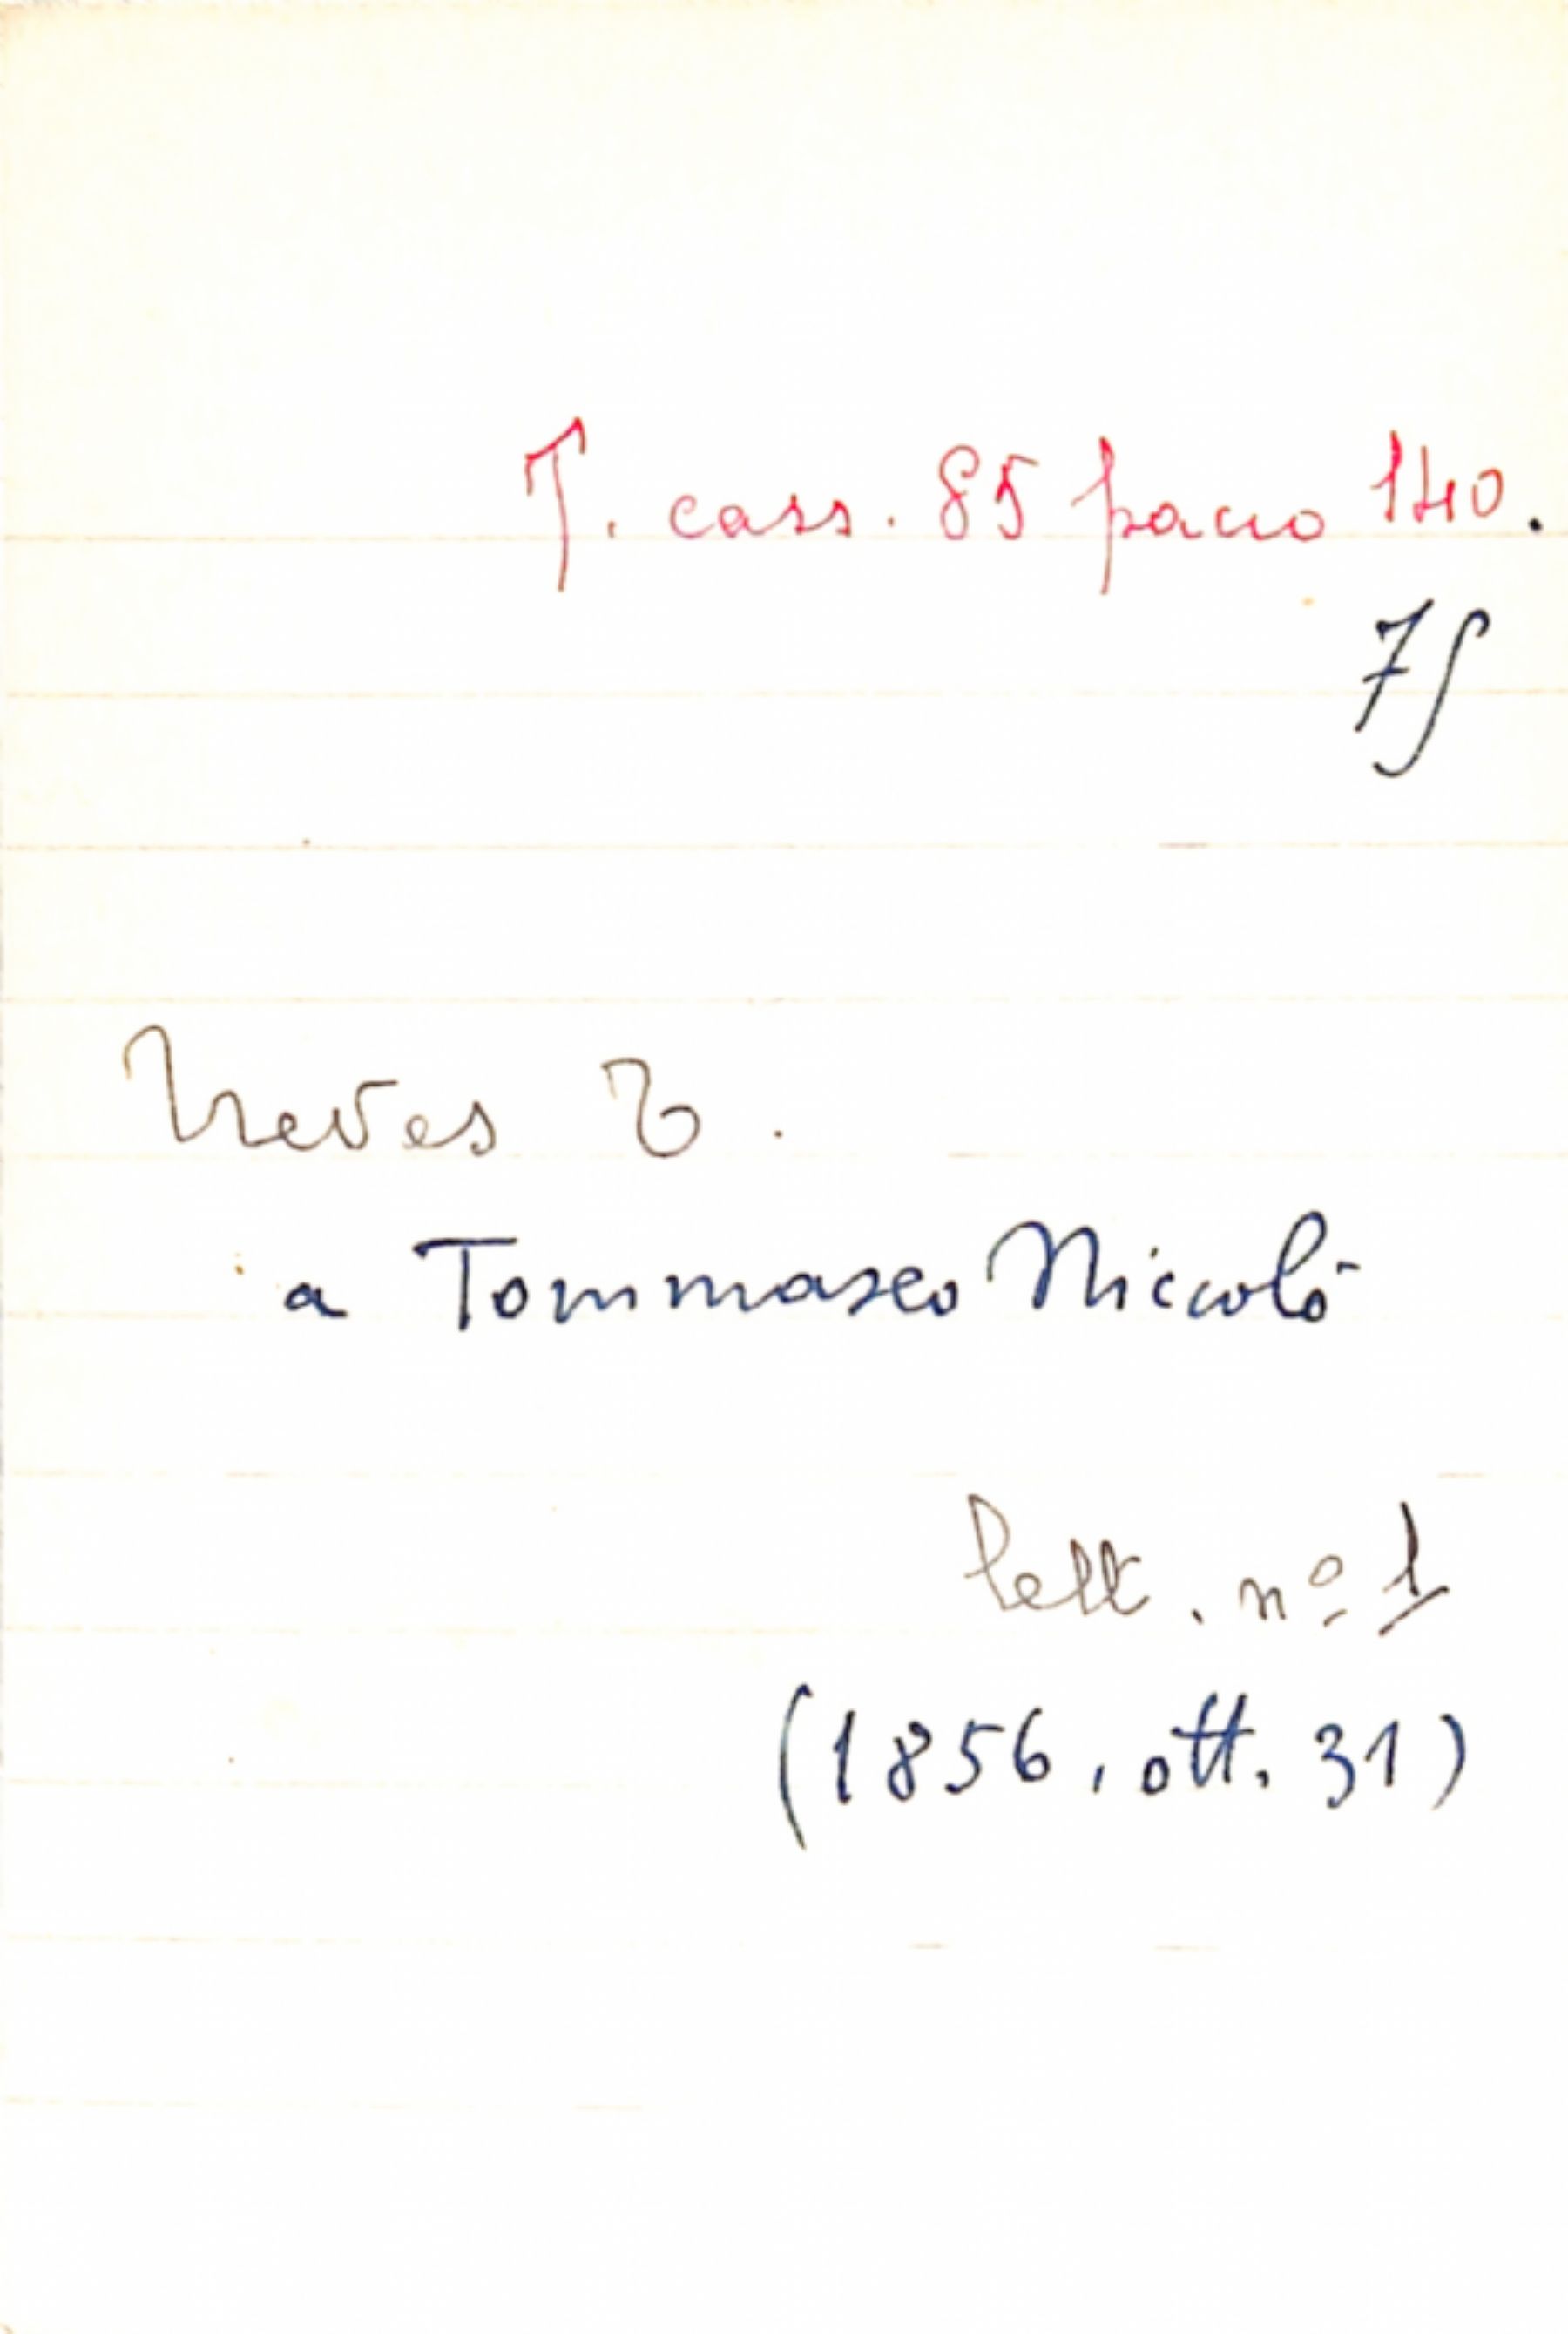 T. cass. 85 pacco 140.
75
Neves T.
a Tommaseo Niccolò
lett. nº 1
(1856, ott. 31)